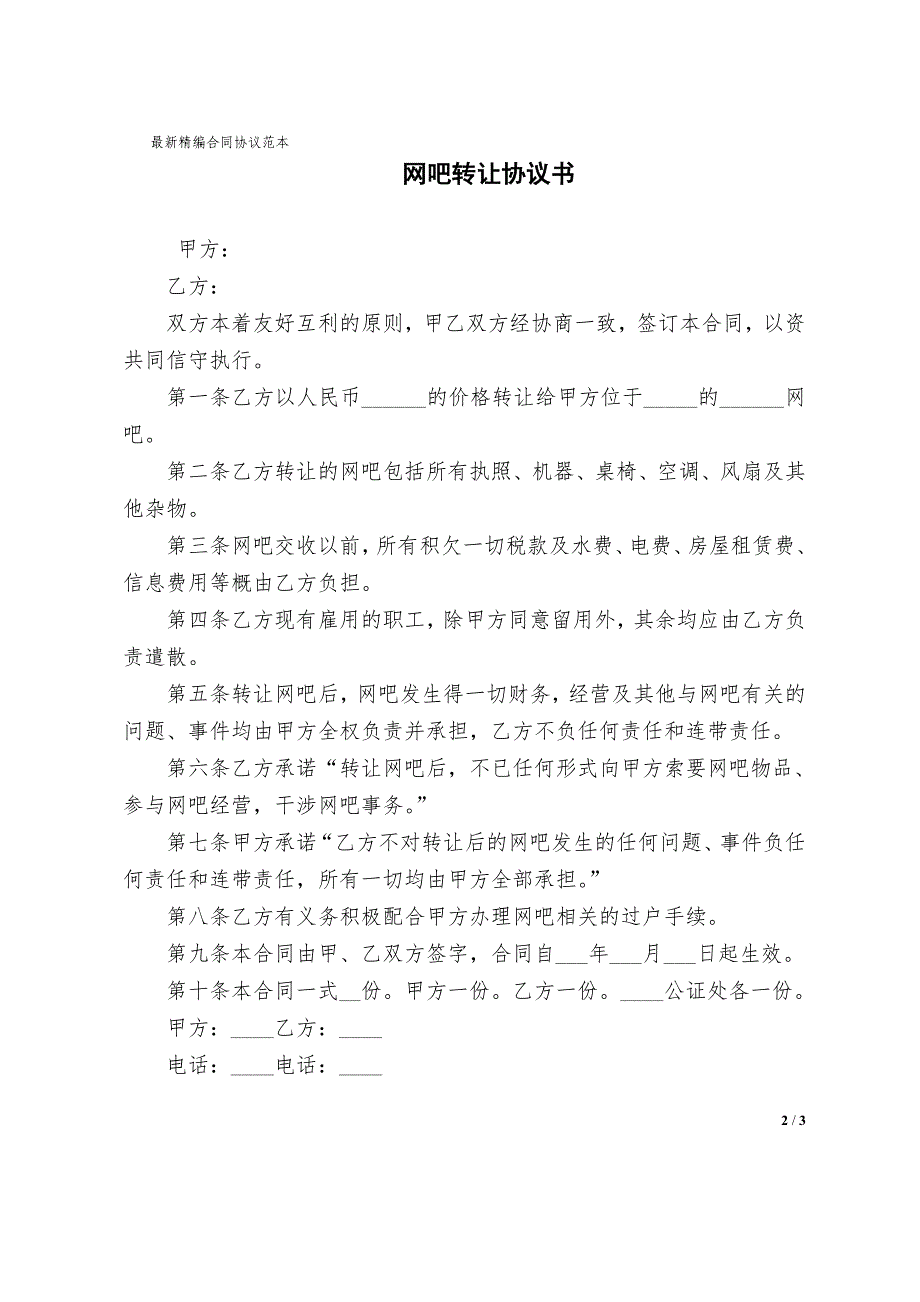 最新精编合同协议范本
网吧转让协议书
甲方：
乙方：
双方本着友好互利的原则，甲乙双方经协商一致，签订本合同，以资
共同信守执行。
第一条乙方以人民币______的价格转让给甲方位于_____的______网
吧。
第二条乙方转让的网吧包括所有执照、机器、桌椅、空调、风扇及其
他杂物。
第三条网吧交收以前，所有积欠一切税款及水费、电费、房屋租赁费、
信息费用等概由乙方负担。
第四条乙方现有雇用的职工，除甲方同意留用外，其余均应由乙方负
责遣散。
第五条转让网吧后，网吧发生得一切财务，经营及其他与网吧有关的
问题、事件均由甲方全权负责并承担，乙方不负任何责任和连带责任。
第六条乙方承诺“转让网吧后，不已任何形式向甲方索要网吧物品、
参与网吧经营，干涉网吧事务。”
第七条甲方承诺“乙方不对转让后的网吧发生的任何问题、事件负任
何责任和连带责任，所有一切均由甲方全部承担。”
第八条乙方有义务积极配合甲方办理网吧相关的过户手续。
第九条本合同由甲、乙双方签字，合同自___年___月___日起生效。
第十条本合同一式__份。甲方一份。乙方一份。____公证处各一份。
甲方：____乙方：____
电话：____电话：____
2 / 3